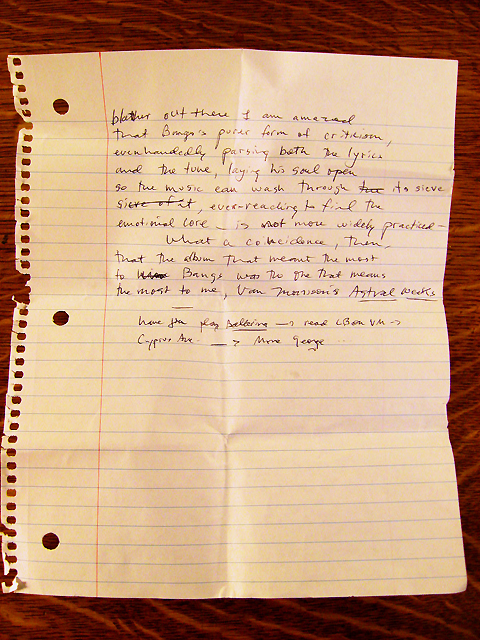 blather out there I am amazed
that Bangs's purer form of criticism,
evenhandedly parsing both the lyrics
and the tune, laying his soul open
so the music can wash through the its sieve
sieve of it, ever-reaching to find the
emotional core – is not more widely practiced –
What a coincidence, then,
that the album that meant the most
to Bangs was the one that means
the most to me, Van Morrison's Astral Weeks
have you play Ballerina → read LB on VM →
Cyprus Ave. → More George ...